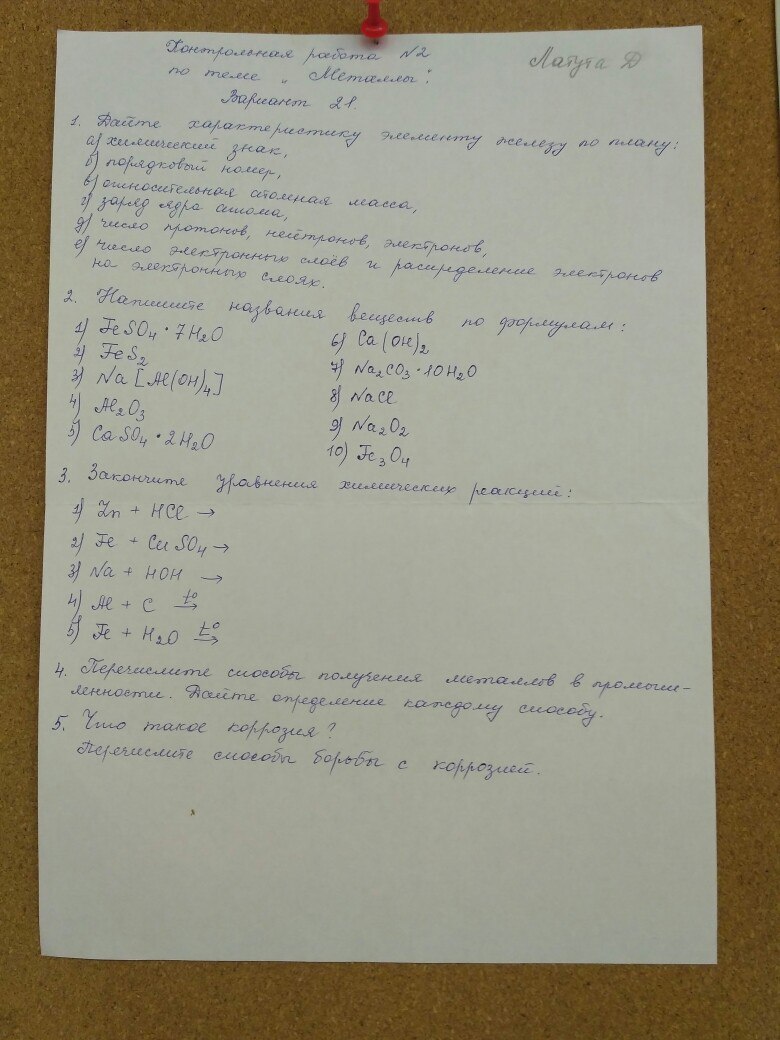 Контрольная работа №2
Латута Д
по теме „Металлы“.
Вариант 21.
1. Дайте характеристику элементу железу по плану:
а) химический знак,
б) порядковый номер,
в) относительная атомная масса,
г) заряд ядра атома,
д) число протонов, нейтронов, электронов,
е) число электронных слоёв и распределение электронов
на электронных слоях.
2. Напишите названия веществ по формулам:
1) FeSO₄ · 7H₂O
2) FeS₂
3) Na [Al(OH)₄]
4) Al₂O₃
5) CaSO₄ · 2H₂O
6) Ca(OH)₂
7) Na₂CO₃ · 10H₂O
8) NaCl
9) Na₂O₂
10) Fe₃O₄
3. Закончите уравнения химических реакций:
1) Zn + HCl →
2) Fe + CuSO₄ →
3) Na + HOH →
4) Al + C t° →
5) Fe + H₂O t° →
4. Перечислите способы получения металлов в промыш-
ленности. Дайте определение каждому способу.
5. Что такое коррозия?
Перечислите способы борьбы с коррозией.